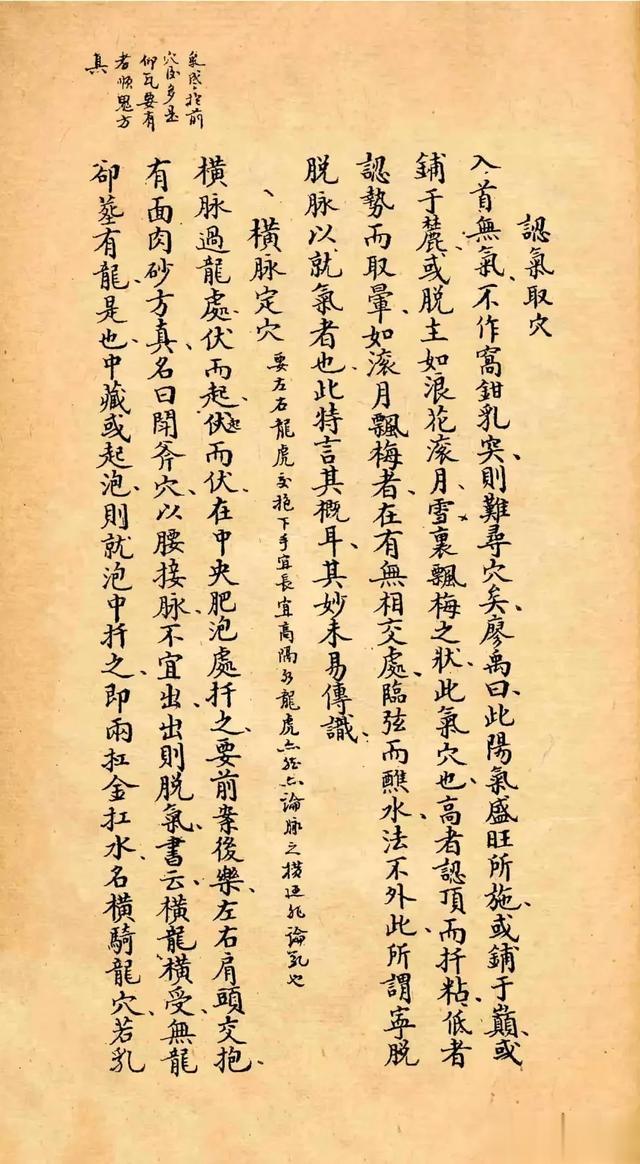 氣於前
穴多是
仰瓦要有
者順鬼方
真
認氣取穴
入首無氣、不作窩鉗乳突、則難尋穴矣、廖禹曰、此陽氣盛旺所施、或鋪于巔、或
鋪于麓、或脫主如浪花滚月、雪裏飄梅之狀、此氣穴也、高者認頂而扦粘、低者
認勢而取暈、如滚月飄梅者、在有無相交處、臨弦而醮水、法不外此、所謂寧脫
脫脉以就氣者也、此特言其概耳、其妙未易傳識、
、橫脉定穴 要左右龍虎交抱下手宜長宜高隔水龍虎論脉之論氣也
橫脉過龍處伏而起、起伏而伏、在中央肥泡處扦之、要前案後樂、左右肩頭交抱、
有面肉砂方真、名曰開斧穴、以腰接脉、不宜出、出則脫氣、書云、橫龍橫受、無龍
卻塟有龍、是也、中藏或起泡、則就泡中扦之、即兩扛金扛水、名橫騎龍穴、若乳